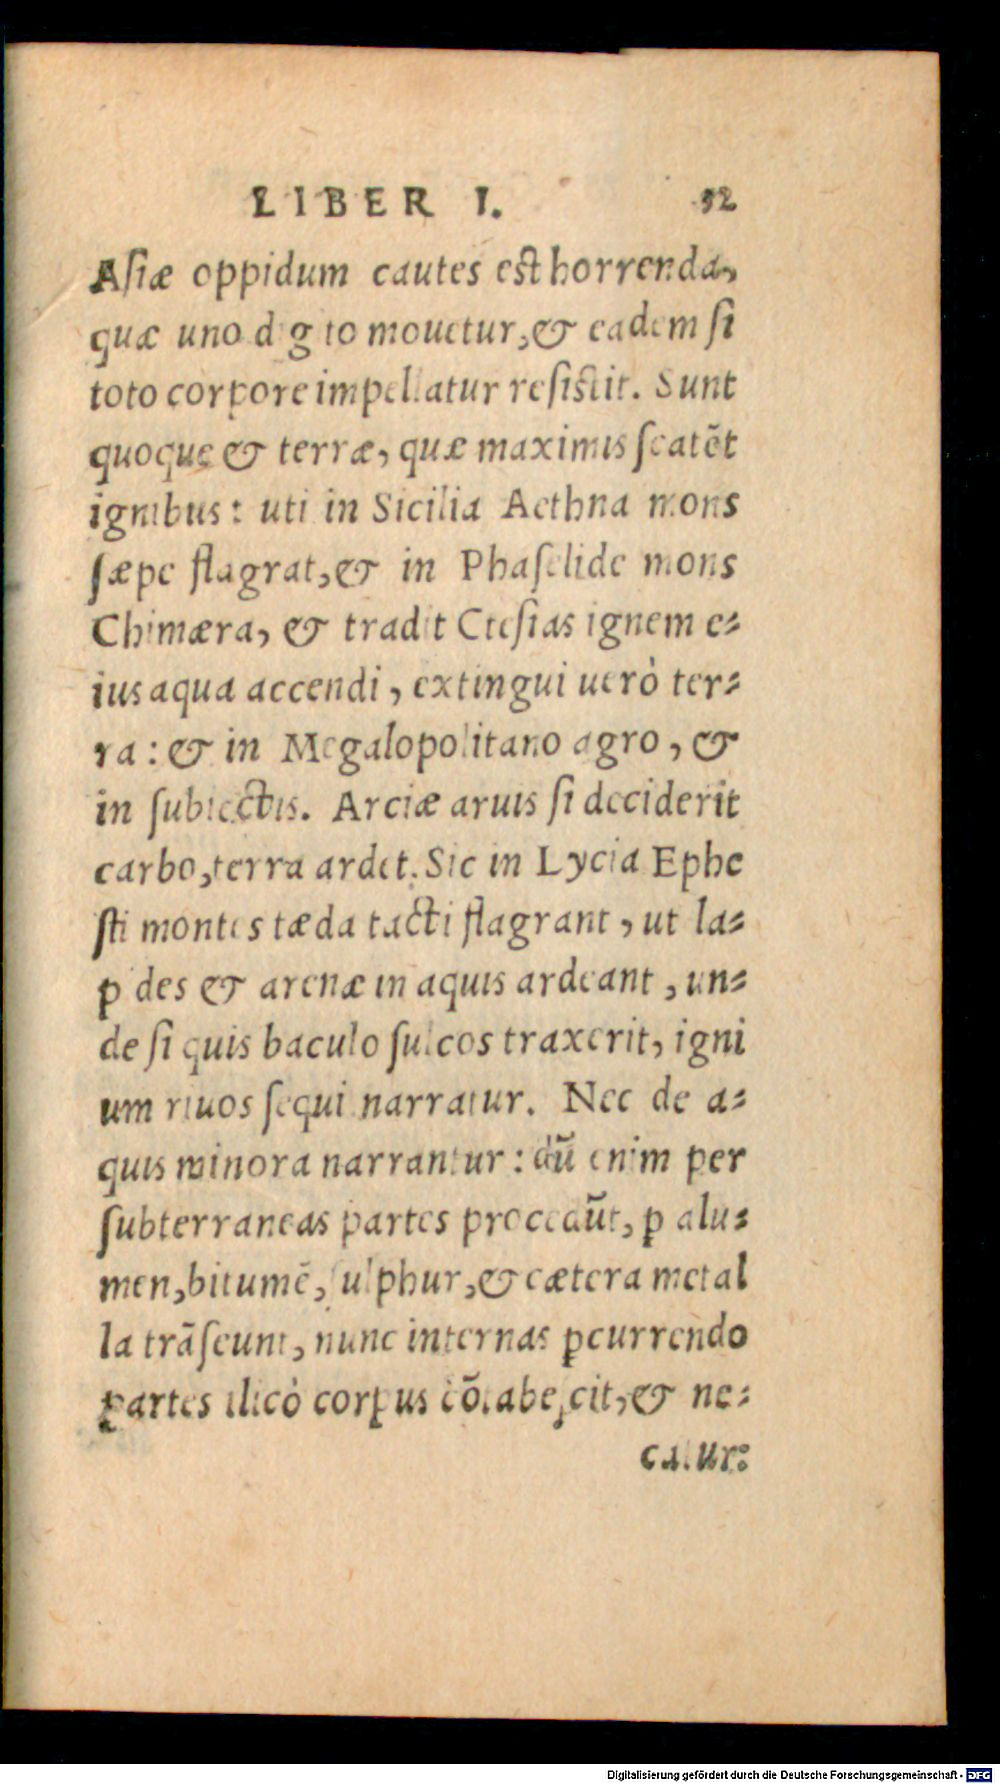 LIBER I. 52
Asiæ oppidum cautes est horrenda,
quæ uno digito mouetur, & eadem si
toto corpore impellatur resistit. Sunt
quoque & terræ, quæ maximis scatēt
ignibus: uti in Sicilia Aethna mons
sæpe flagrat, & in Phaselide mons
Chimæra, & tradit Ctesias ignem e-
ius aqua accendi, extingui uerò ter-
ra: & in Megalopolitano agro, &
in subiectis. Arciæ aruis si deciderit
carbo, terra ardet. Sic in Lycia Ephe
sti montes tæda tacti flagrant, ut la-
pides & arenæ in aquis ardeant, un-
de si quis baculo sulcos traxerit, igni
um riuos sequi narratur. Nec de a-
quis minora narrantur: dū enim per
subterraneas partes procedūt, ꝑ alu-
men, bitumē, sulphur, & cætera metal
la trāseunt, nunc internas ꝑcurrendo
partes ilicò corpus cōtabescit, & ne-
catur:
Digitalisierung gefördert durch die Deutsche Forschungsgemeinschaft - DFG